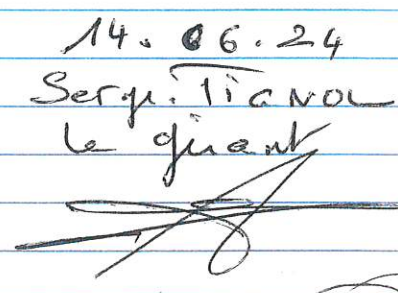 14.06.24
Serge TIGNOL
le gérant